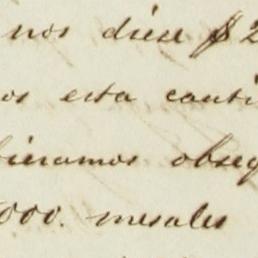 nos diese $ 2
os esta canti
bieramos obseq
000. mesales